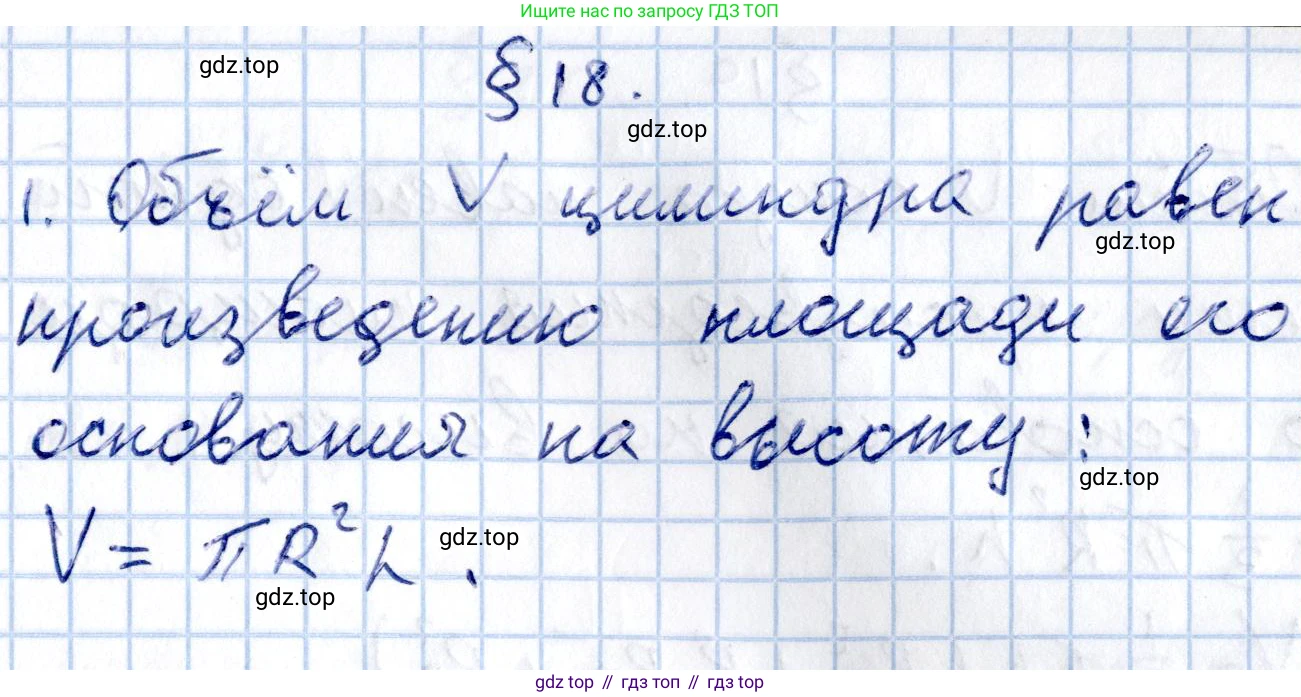 Ищите нас по запросу ГДЗ ТОП
gdz.top
§ 18.
gdz.top
1. Объём V цилиндра равен
gdz.top
произведению площади его
основания на высоту:
gdz.top
V = πR²h.
gdz.top
gdz.top
gdz top // гдз топ // гдз top